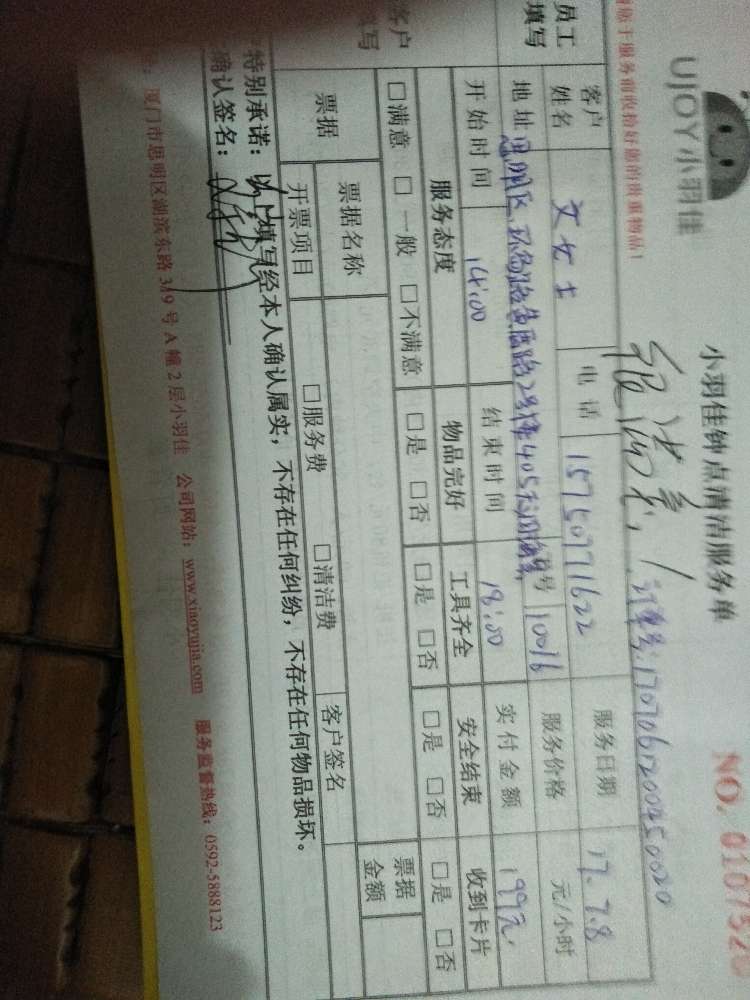 UJOY小羽佳
小羽佳钟点清洁服务单
NO. 0107520
于服务前收拾好您的贵重物品!
很满意! 订单号:17070612009450020
员工填写
客户姓名 文女士 电话 15750771622 服务日期 17.7.8
地址 思明区环岛路 号 10016 服务价格 元/小时
开始时间 14:00 结束时间 18:00 实付金额 199元
客户
服务态度 物品完好 工具齐全 安全结束 收到卡片
□满意 □一般 □不满意 □是 □否 □是 □否 □是 □否 □是 □否
票据 票据名称 客户签名 票据金额
开票项目 □服务费 □清洁费
特别承诺:以上填写经本人确认属实,不存在任何纠纷,不存在任何物品损坏。
确认签名:
厦门市思明区湖滨东路319号A幢2层小羽佳 公司网站:www.xiaoyujia.com 服务监督热线:0592-5888123